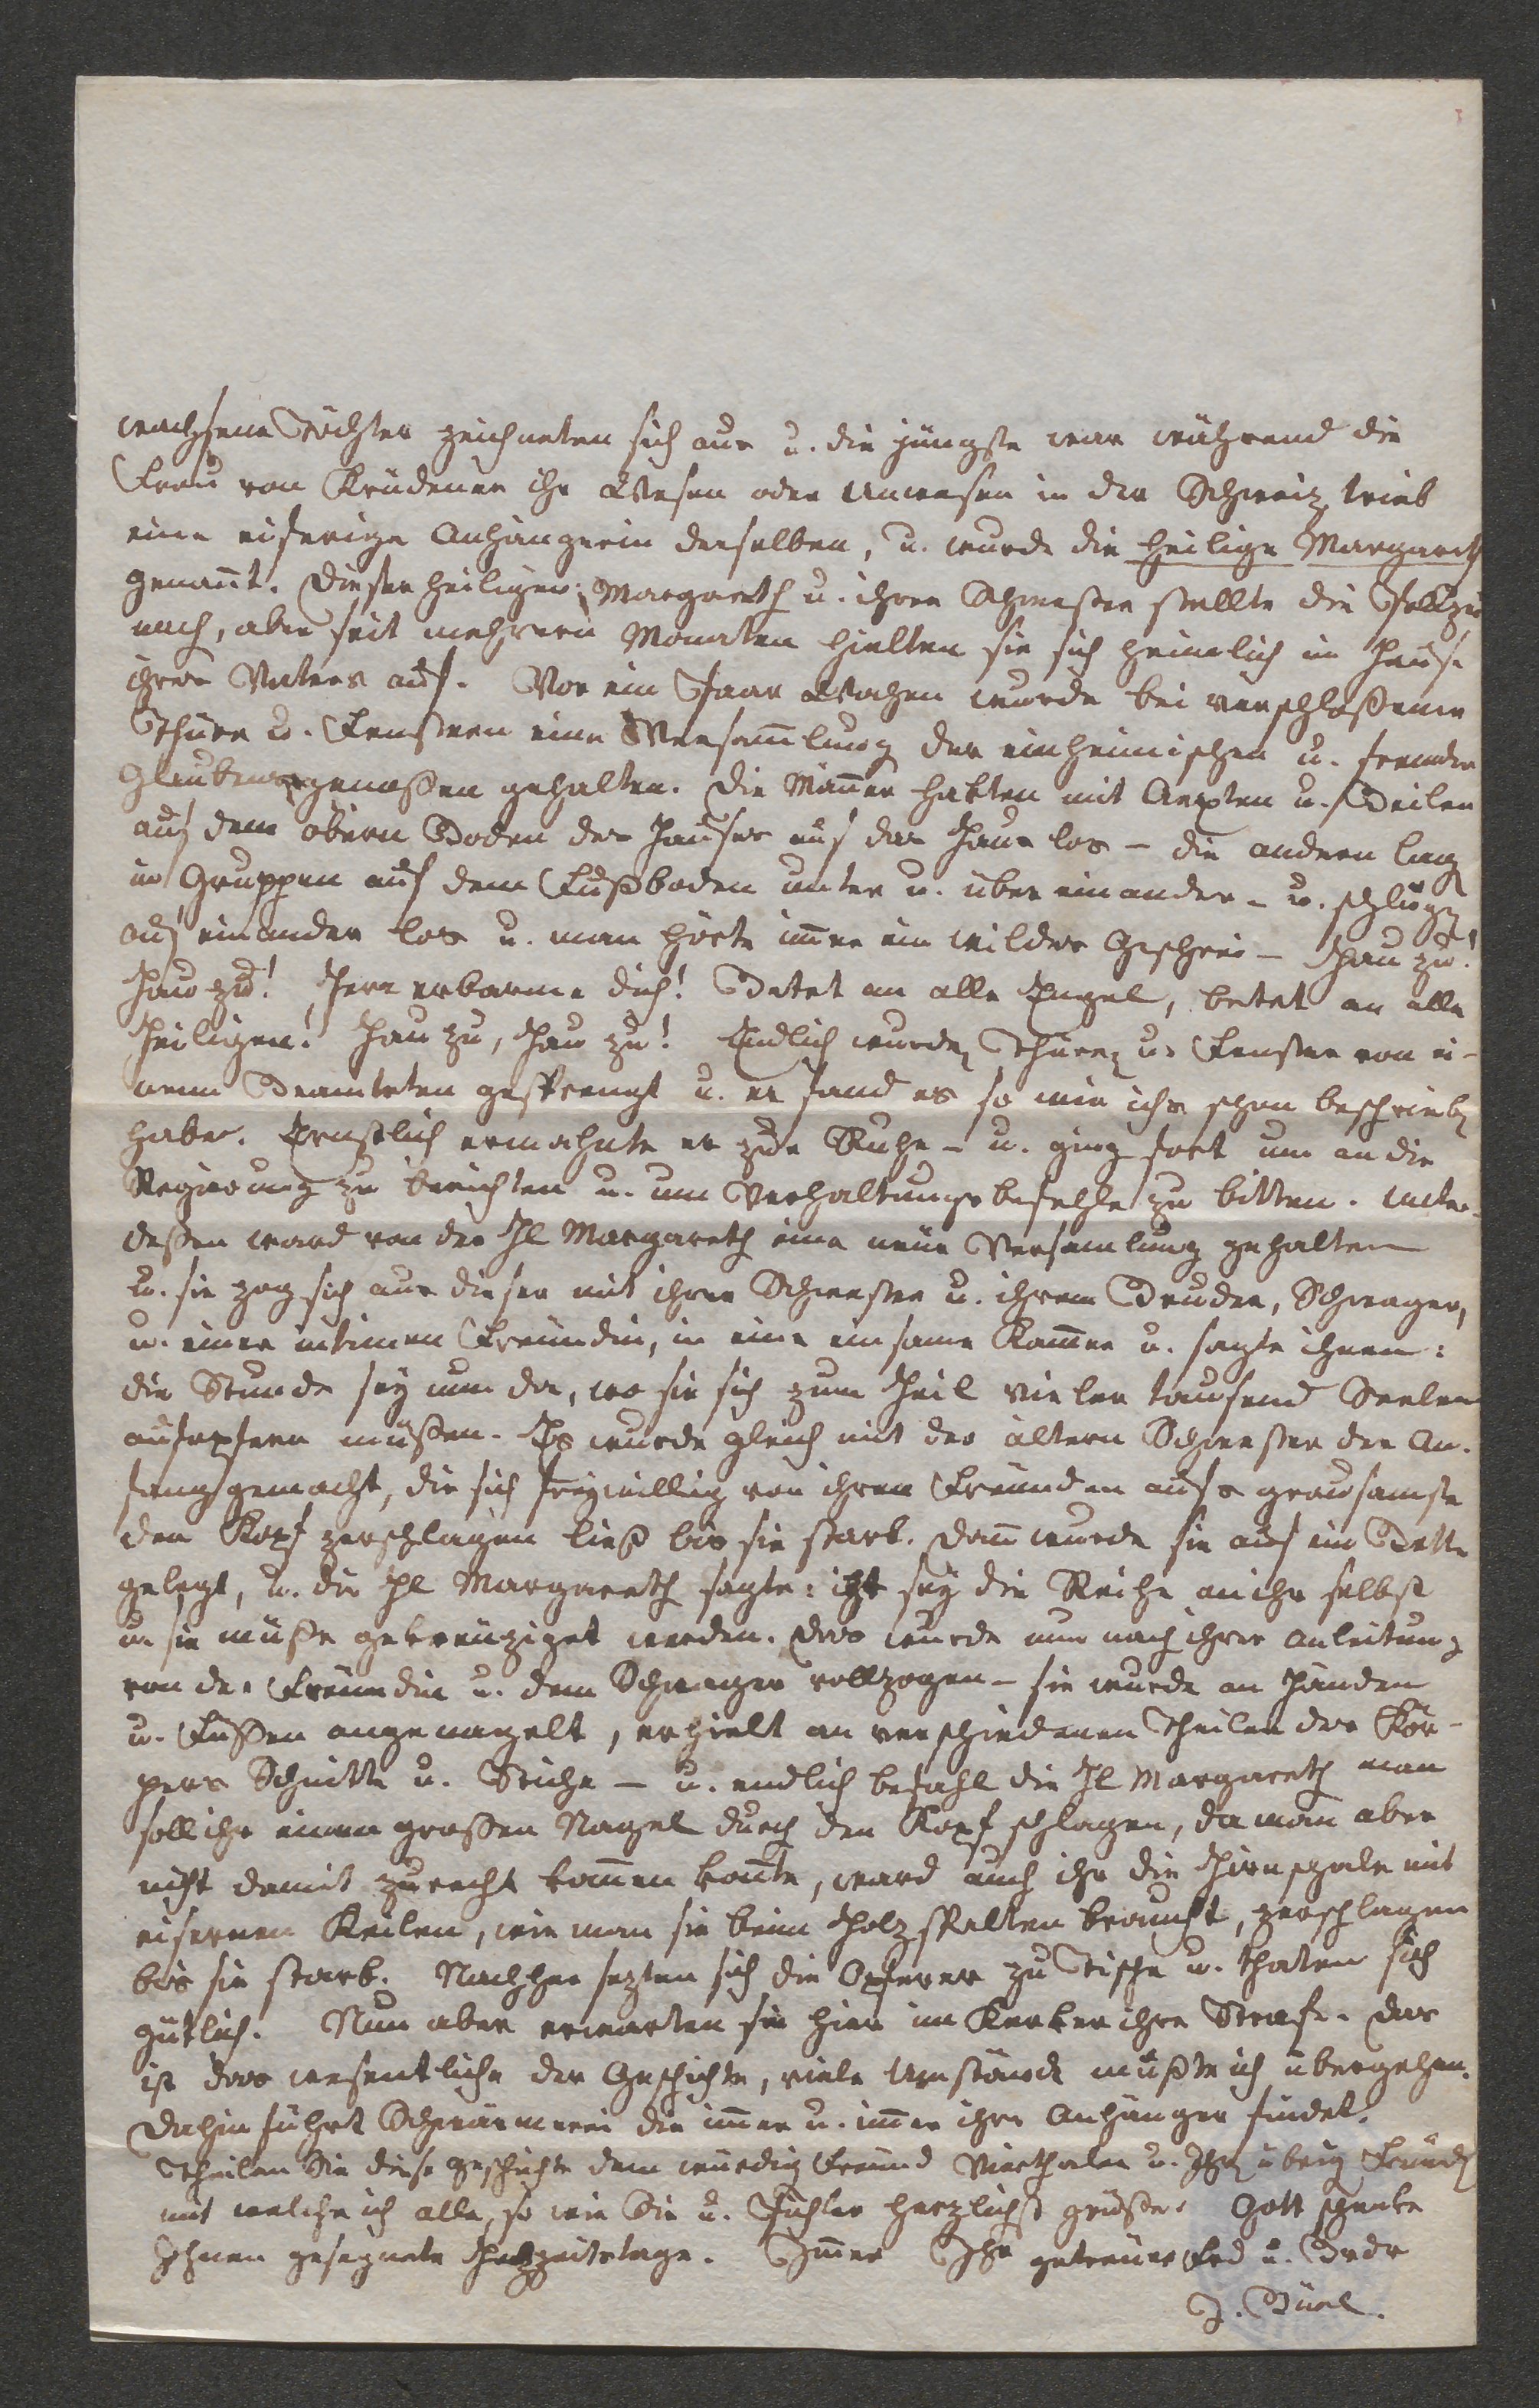 wachsene Töchter zeichneten sich aus u. die jüngste war während die
Frau von Krüdener ihr Wesen oder Unwesen in der Schweiz trieb
eine eifrige Anhängerin derselben, u. wurde die heilige Margareth
genannt. Dieser heiligen Margareth u. ihrer Schwester stellte die Polizei
nach, aber seit mehrern Monaten hielten sie sich heimlich im Hause
ihres Vaters auf. Vor ein Paar Wochen wurde bei verschloßener
Thüre u. Fenstern eine Versammlung der einheimischen u. fremden
Glaubensgenoßen gehalten. Die Männer hakten mit Aexten u. Beilen
auf dem obern Boden des Hauses auf das Haus los – die andern lag
in Gruppen auf dem Fußboden unter u. über einander – u. schlugen
auf einander los u. man hörte immer ein wildes Geschrei – Hau zu!
Hau zu! Herr erbarme dich! Betet an alle Engel, betet an alle
Heiligen! Hau zu, Hau zu! Endlich wurden Thüren u. Fenster von ei-
nem Beamteten gesprengt u. er fand es so wie ichs schon beschrieben
habe. Ernstlich ermahnte er zur Ruhe – u. ging fort um an die
Regierung zu berichten u. um Verhaltungsbefehle zu bitten. Unter-
deßen ward von der Hl Margareth eine neue Versamlung gehalten
u. sie zog sich aus dieser mit ihrer Schwester u. ihrem Bruder, Schwager,
u. einer intimen Freundin, in eine einsame Kammer u. sagte ihnen:
die Stunde sey nun da, wo sie sich zum Heil vieler tausend Seelen
aufopfern müßen. Es wurde gleich mit der ältern Schwester der An-
fang gemacht, die sich freywillig von ihren Freunden aufs grausamste
den Kopf zerschlagen ließ bis sie starb. Dann wurde sie auf ein Bette
gelegt, u. die Hl Margareth sagte: izt sey die Reihe an ihr selbst
u. sie müße gekreuziget werden. Das wurde nun nach ihrer Anleitung
von der Freundin u. dem Schwager vollzogen – sie wurde an Händen
u. Füßen angenagelt, erhielt an verschiedenen Theilen des Kör-
pers Schnitte u. Stiche – u. endlich befahl die Hl Margareth man
soll ihr einen großen Nagel durch den Kopf schlagen, da man aber
nicht damit zurecht kommen konnte, ward auch ihr die Hirnschale mit
eisernen Keilen, wie man sie beim Holzspalten braucht, zerschlagen
bis sie starb. Nachher sezten sich die Opferer zu Tische u. thaten sich
gütlich. Nun aber erwarten sie hier im Kerker ihre Strafe. Das
ist das wesentliche der Geschichte, viele Umstände mußte ich übergehen.
Dahin führt Schwärmerei die immer u. immer ihre Anhänger findet.
Theilen Sie diese Geschichte dem würdig Freund Vierthaler u. Ihren übrig Freunden
mit welche ich alle, so wie Sie u. Pichler herzlichst grüße. Gott schenke
Ihnen gesegnete Hochzeitstage. Immer Ihr getreuer Frd u. Brdr
J. Büel.